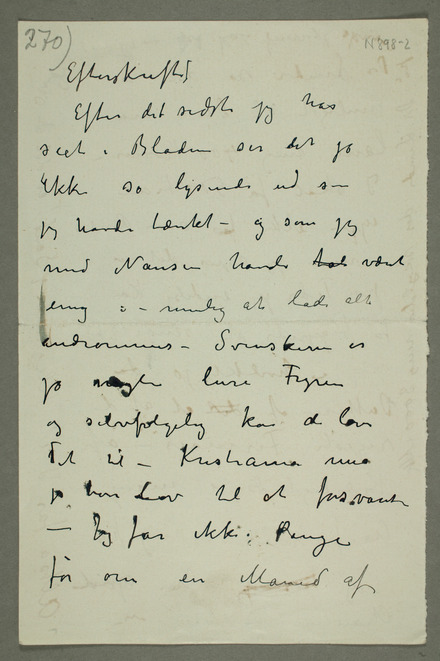 270)
N 898-2
Efterskrift
Efter det sidste jeg har
seet i Bladene ser det jo
ikke so lysende ud som
jeg havde tænkt – og som jeg
med Nansen havde været
enig i – nemlig at lade alt
indrømmes – Svenskerne er
jo lure Fyren
og selvfølgelig kan de lave
det til – Kristiania maa
jo ha lov til at forsvare
– Jeg faar ikke Penge
før om en Maaned af